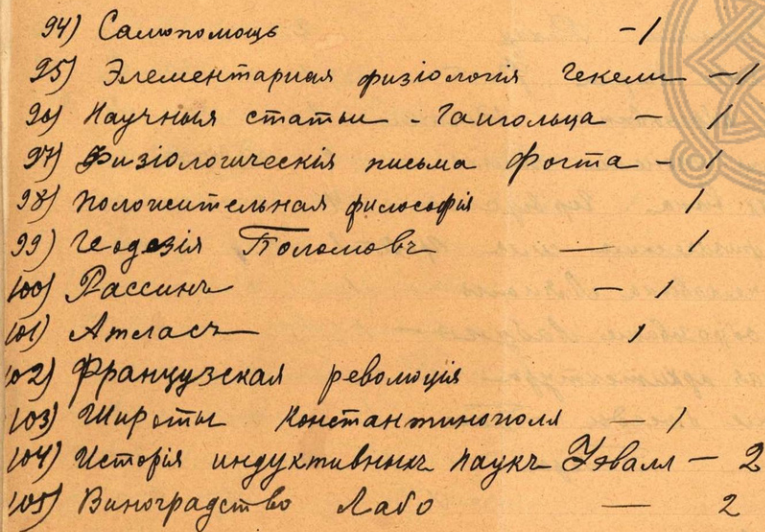 94) Самопомощь - 1
95) Элементарная физіологія Гекели - 1
96) Научныя статьи - Гаигольца - 1
97) Физіологическія письма Фогта - 1
98) Положительная философія 1
99) Геодезія Поломовъ — 1
100) Рассинъ - 1
101) Атласъ 1
102) Французская революція
103) Широты Константинополя - 1
104) Исторія индуктивныхъ наукъ Уэвалл - 2
105) Виноградство Лабо — 2